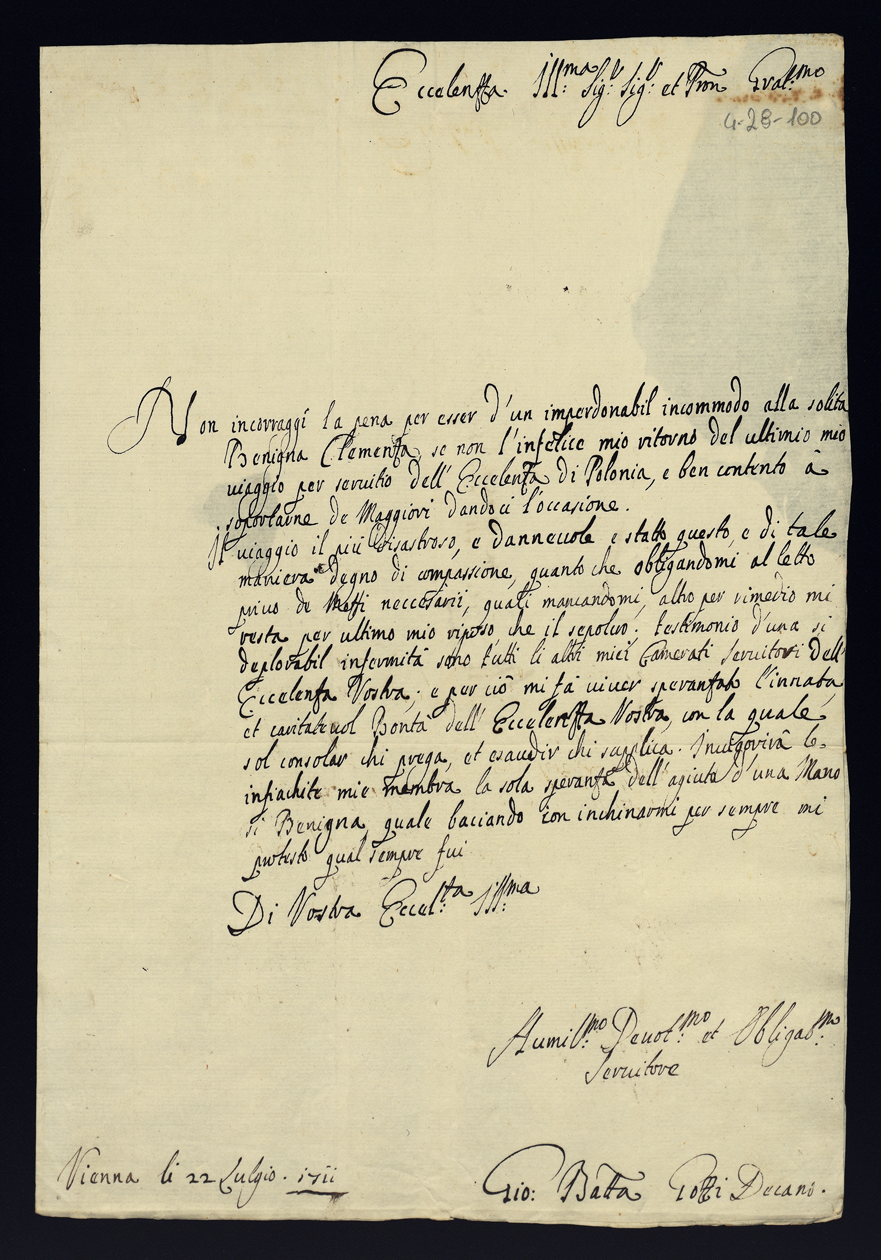 Eccelenza Ill:ma Sig:r Sig:r et Pron Gral:mo
4-28-100
Non incorraggi la pena per esser d'un imperdonabil incommodo alla solita
Benigna Clemenza, se non l'infelice mio ritorno del ultimio mio
viaggio per servitio dell' Eccelenza di Polonia, e ben contento â
soportarne de Maggiori dandoci l'occasione.
Il viaggio il più disastroso, e dannevole e statto questo, e di tale
maniera degno di compassione, quanto che obligandomi al letto
privo de Mezzi neccesarii, quali mancandomi, altro per rimedio mi
resta per ultimo mio riposo, che il sepolcro; testimonio d'una si
deplorabil infermitâ sono tutti li altri miei Camerati Servitori dell'
Eccelenza Vostra; e per ciô mi fâ viver speranzat l'innata,
et caritatevol Bontâ dell' Eccelenza Vostra, con la quale
sol consolar chi prega, et esaudir chi supplica. Invigorirâ le
infiachite mie membra la sola speranza dell' agiuto d'una Mano
si Benigna, quale baciando con inchinarmi per sempre mi
protesto qual sempre fui
Di Vostra Eccel:za Ill:ma
Humil:mo Devot:mo et Obligat:mo
Servitore
Vienna li 22 Lulgio. 1711
Gio: Batta Gozzi Decano.